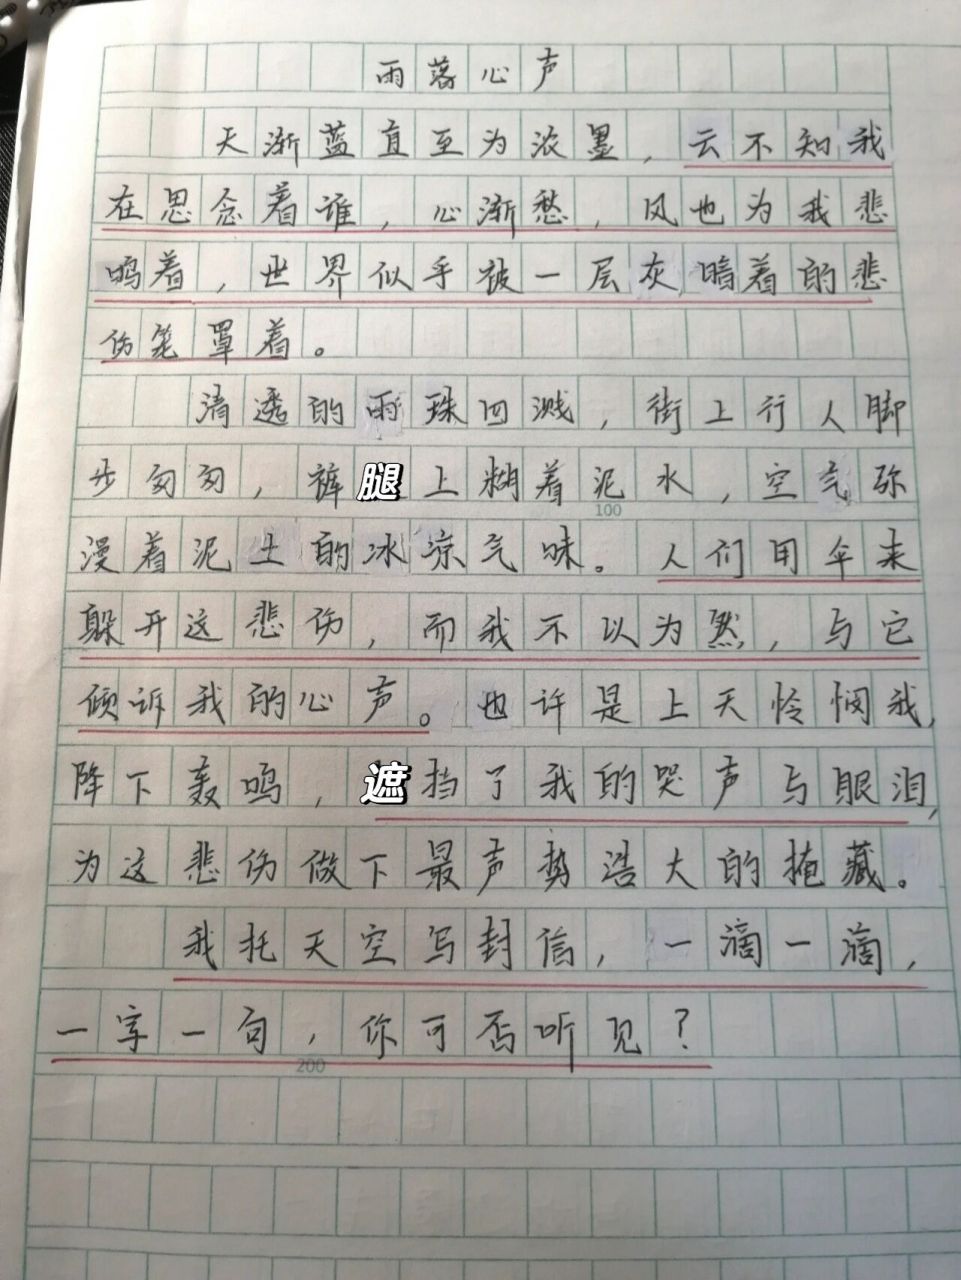 雨落心声
天渐蓝直至为浓墨，云不知我
在思念着谁，心渐愁，风也为我悲
鸣着，世界似乎被一层灰暗着的悲
伤笼罩着。
清透的雨珠四溅，街上行人脚
步匆匆，裤腿上糊着泥水，空气弥
100
漫着泥土的冰凉气味。人们用伞来
躲开这悲伤，而我不以为然，与它
倾诉我的心声。也许是上天怜悯我，
降下轰鸣，遮挡了我的哭声与眼泪，
为这悲伤做下最声势浩大的掩藏。
我托天空写封信，一滴一滴，
一字一句，你可否听见？
200